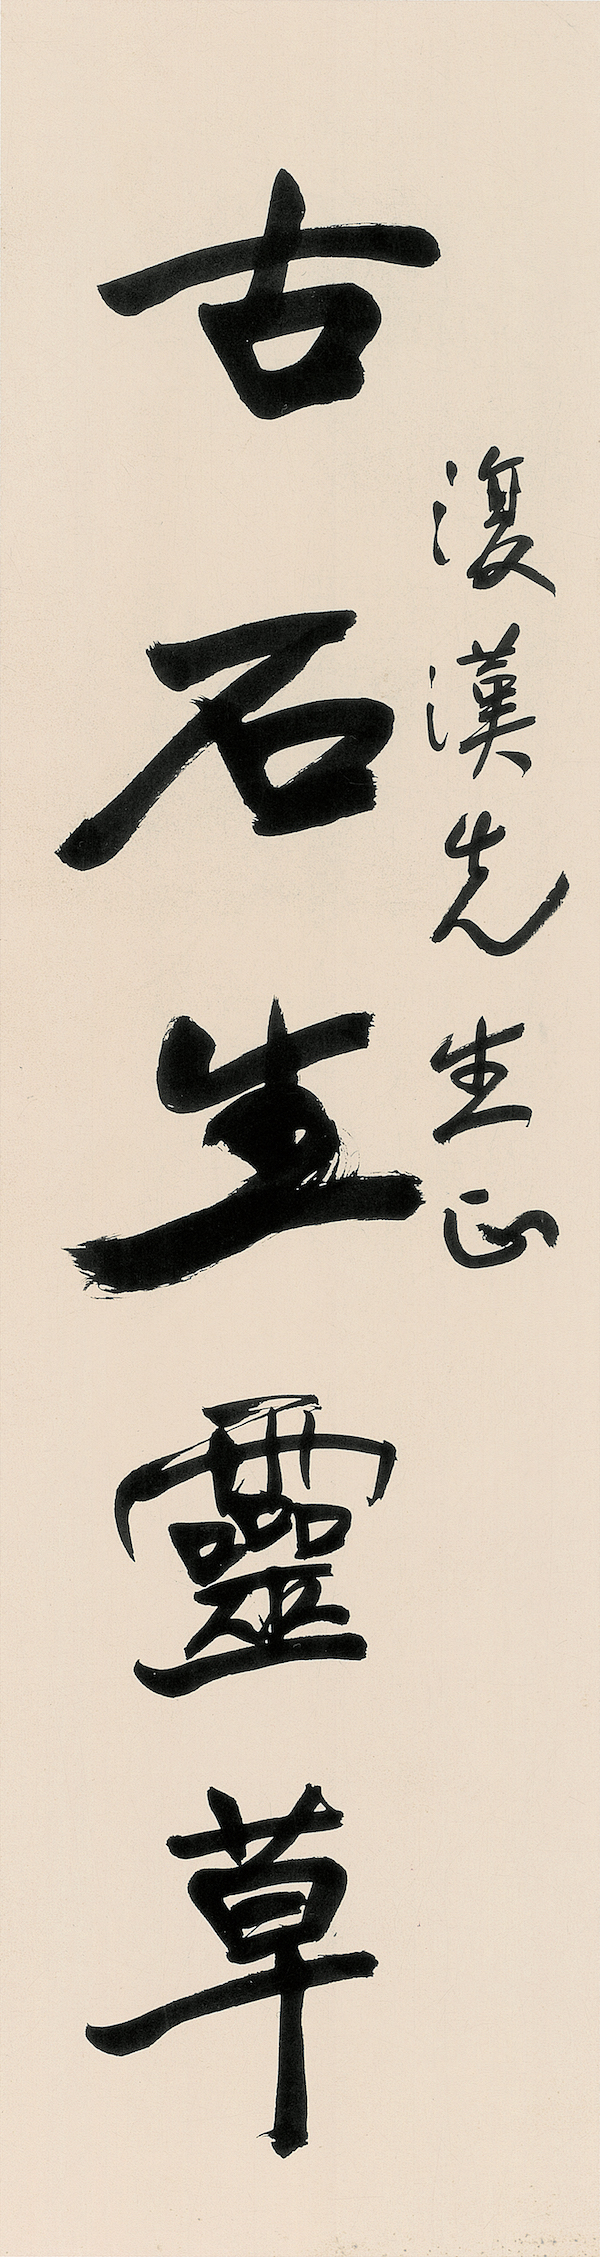 復漢先生正
古石生靈草